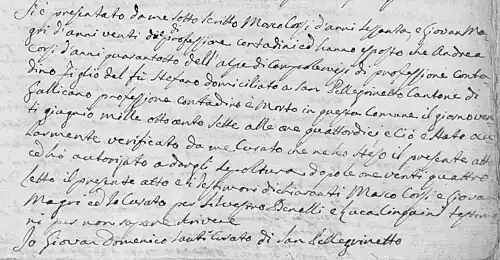 Si è presentato da me sotto scritto Marco Corsi d'anni sessanta, e Giovan Ma
gri d'anni venti di professione contadini ed hanno esposto che Andrea
Corsi d'anni quarantotto dell'alpe di Campolemisi di professione Conta
dino Figlio del fu Stefano domiciliato a San Pellegrinetto Cantone di
Gallicano professione contadino e Morto in questa Comune il giorno ven
ti giugnio mille otto cento sette alle ore quattordici e Ciò è stato ocu
larmente verificato da me Curato che ne ho steso il presente atto
ed ho autorizato a dargli sepoltura dopo le ore venti quattro
letto il presente atto e i Testimoni dichiarati Marco Corsi e Giovan
Magri ed Io Curato per Silvestro Benelli e Luca testimo
ni per non sapere scrivere
Io Giovan Domenico Santi Curato di San Pellegrinetto